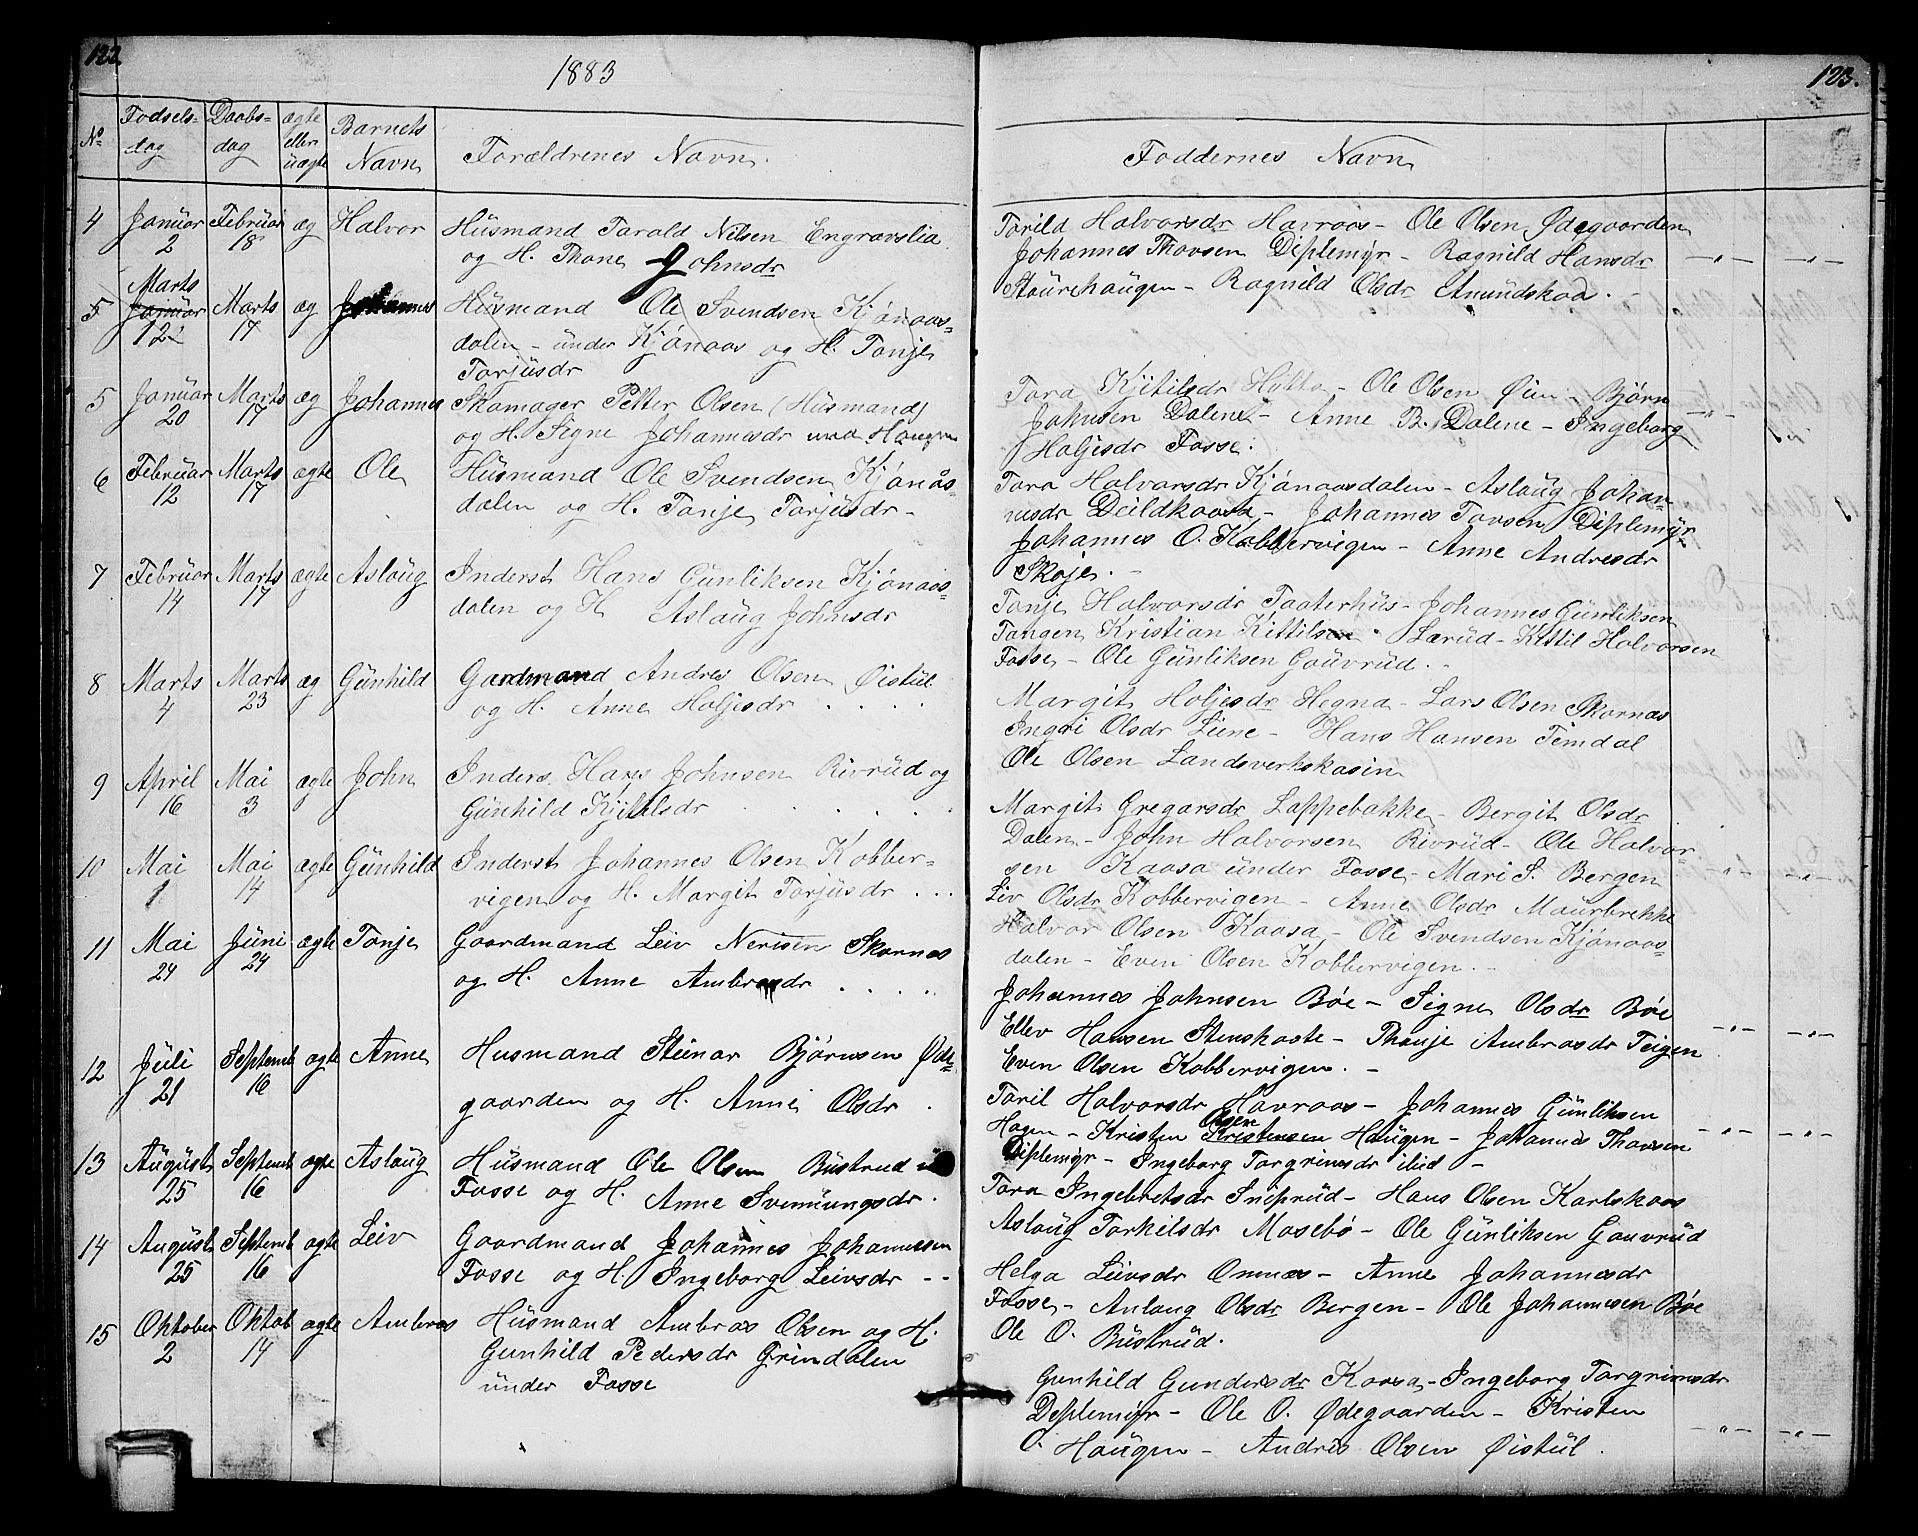 122
1883
No
Fodsels-
dag
Daabs-
dag
ægte
eller
uægte
Barnets
Navn
Forældrenes Navn.
4 Januar 2 Februar 18 æg Halvor Husmand Tarald Nilsen Engravslia
og H. Thone Johnsdr
5 Marts Januar 12 Marts 17 æg Johannes Husmand Ole Svendsen Kjønaas-
dalen - under Kjønaas og H. Tonje
Torjusdr
5 Januar 20 Marts 17 æg Johannes Skomager Petter Olsen (Husmand)
og H. Signe Johannesdr Haugen
6 Februar 12 Marts 17 ægte Ole Husmand Ole Svendsen Kjønås-
dalen og H. Tonje Torjusdr -
7 Februar 14 Marts 17 ægte Aslaug Inderst Hans Gunliksen Kjønaas-
dalen og H Aslaug Johnsdr
8 Marts 4 Marts 23 æg Gunhild Gardmand Andres Olsen Øistul
og H. Anne Holjesdr . . . .
9 April 16 Mai 3 ægte John Inders. Hans Johnsen Rivrud og
Gunhild Kjitilsdr . . . .
10 Mai 1 Mai 14 ægte Gunhild Inderst Johannes Olsen Kobber-
vigen og H. Margit Torjusdr . . .
11 Mai 24 Juni 24 ægte Tonje Gaardmand Leiv Nerisen Skornes
og H. Anne Ambrosdr . . . .
12 Juli 21 Septemb 16 ægte Anne Husmand Steinar Bjørnsen Øde-
gaarden og H. Anne Olsdr .
13 August 25 Septemb 16 ægte Aslaug Husmand Ole Olsen Bustrud u
Fosse og H. Anne Svennungsdr .
14 August 25 Septemb 16 ægte Leiv Gaardmand Johannes Johannessen
Fosse og H. Ingeborg Leivsdr - -
15 Oktober 2 Oktob 14 ægte Ambros Husmand Ambros Olsen og H.
Gunhild Pedersdr Grindalen
under Fosse
123.
Foddernes Navn
Torild Halvorsdr Havraas - Ole Olsen Ødegaarden
Johannes Thovsen Diplemyr - Ragnild Hansdr
Staurehaugen - Ragnild Olsdr Amundskaas .
Tora Kjitilsdr Hytta - Ole Olsen Øun - Bjørn
Johnsen Dalene - Anne B. Dalene - Ingeborg
Holjesdr Fosse.
Tora Halvorsdr Kjønaasdalen - Aslaug Johan-
nesdr Deildkaasa - Johannes Tovsen Diplemyr
Johannes O. Kobbervigen - Anne Andresdr
Skoje. -
Tonje Halvorsdr Taaterhus - Johannes Gunliksen
Tangen Kristian Kittilsen - Lærud - Kittil Halvorsen
Fosse - Ole Gunliksen Gauvrud. -
Margit Holjesdr Hegna - Lars Olsen Skornæs
Ingri Olsdr Liene - Hans Hansen Temdal
Ole Olsen Landsverkskasin
Margit Gregarsdr Lappebakke - Bergit Olsdr
Dalen - John Halvorsen Rivrud - Ole Halvor-
sen Kaasa under Fosse - Mari S. Bergen
Liv Olsdr Kobbervigen - Anne Olsdr Maurbrekke
Halvor Olsen Kaasa - Ole Svendsen Kjønaas-
dalen - Even Olsen Kobbervigen. -
Johannes Johnsen Bøe - Signe Olsdr Bøe
Ellev Hansen Stenskaste - Thonje Ambrosdr Teigen
Even Olsen Kobbervigen. -
Toril Halvorsdr Havraas - Johannes Gunliksen
Hagen - Kristen Olsen Kristensen Haugen - Johannes Thovsen
Diplemyr - Ingeborg Torgrimsdr ibid -
Tora Ingebretsdr Sneprud - Hans Olsen Karlskaas
Aslaug Torkelsdr Mosebø - Ole Gunliksen Gauvrud
Helga Leivsdr Omnæs - Anne Johannesdr
Fosse - Anlaug Olsdr Bergen - Ole Johannesen Bøe
Ole O. Bustrud.
Gunhild Gundersdr Kaasa - Ingeborg Torgrimsdr
Deplemyr - Ole O. Ødegaarden - Kristen
O. Haugen - Andris Olsen Øistul .